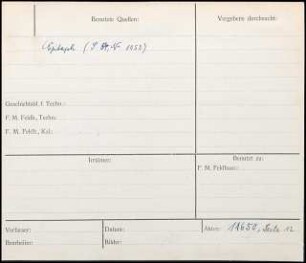 Benutzte Quellen:
Vergebens durchsucht:
Geschichtsbl. f. Techn.:
F. M. Feldh., Techn.:
F. M. Feldh., Kal.:
Irrtümer:
Benutzt zu:
F. M. Feldhaus:
Verfasser:
Datum:
Akten: 11650,
Bearbeiter:
Bilder: